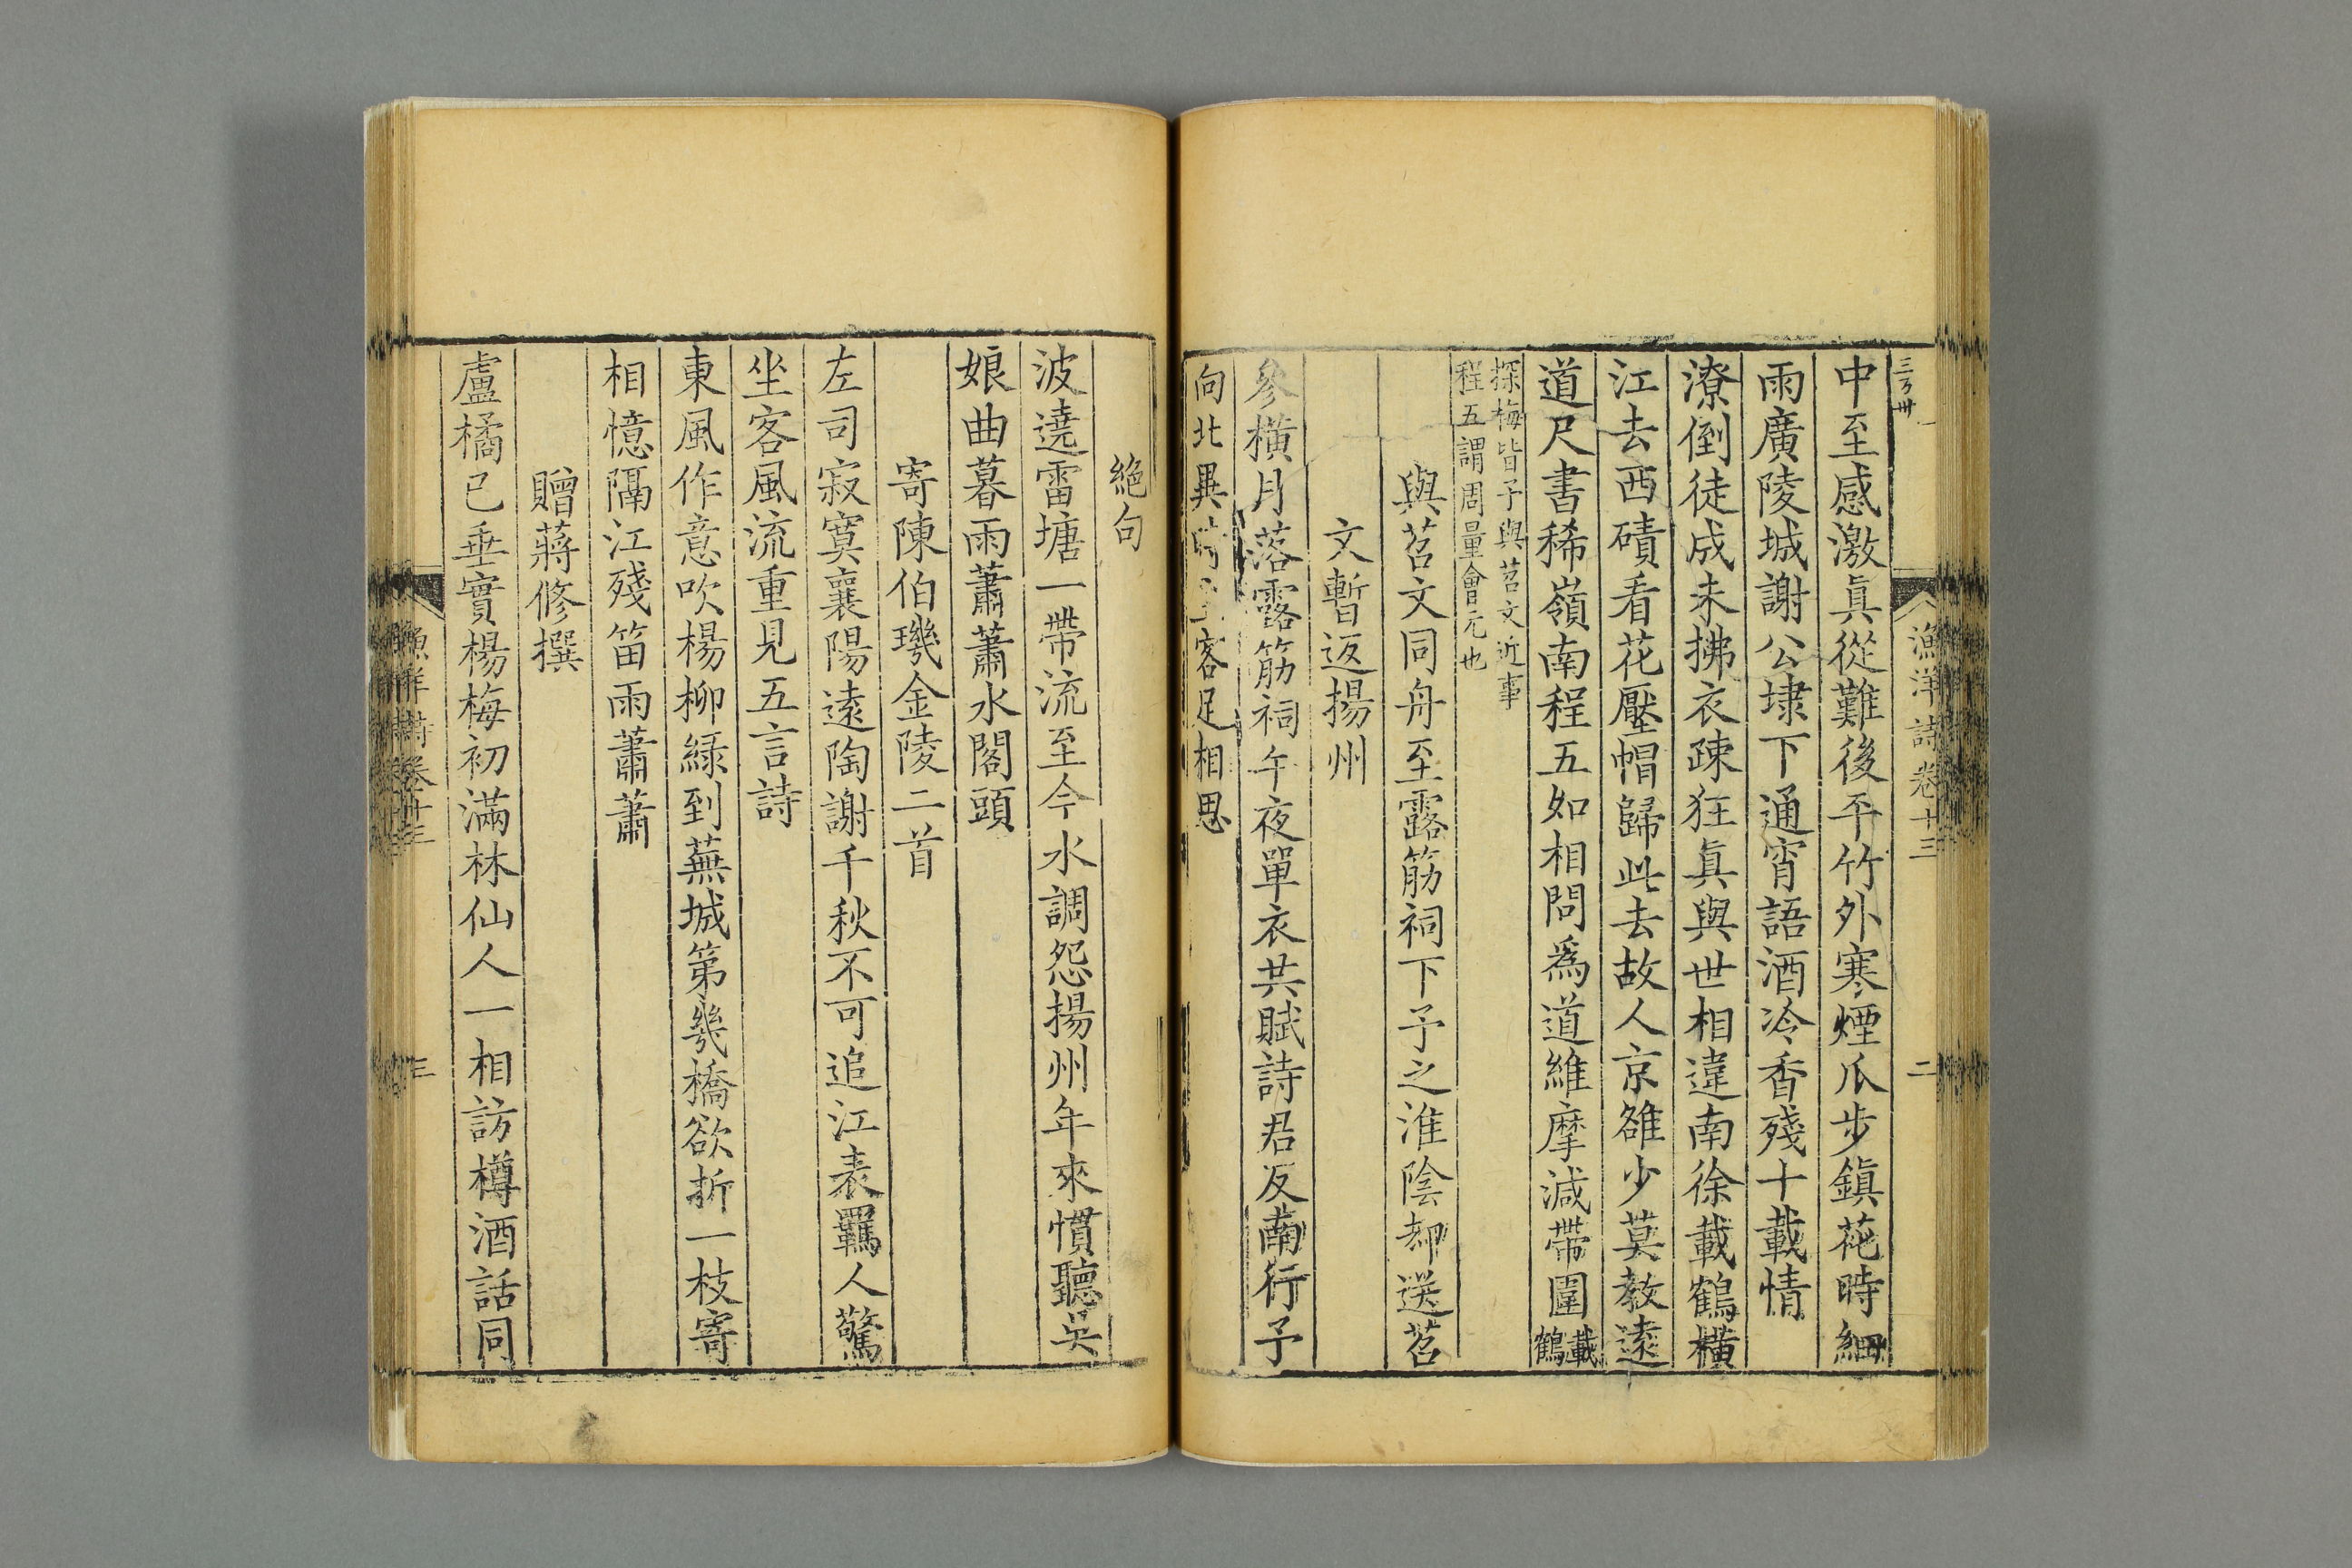 漁洋詩卷十三
二
中至感激眞從難後平竹外寒煙瓜步鎮花時細
雨廣陵城謝公埭下通宵語酒冷香殘十載情
潦倒徒成未拂衣疎狂眞與世相違南徐載鶴橫
江去西磧看花壓帽歸此去故人京雒少莫教遠
道尺書稀嶺南程五如相問爲道維摩減帶圍載鶴
探梅皆予與苕文近事
程五謂周量會元也
與苕文同舟至露筋祠下予之淮陰却送苕
文暫返揚州
參橫月落露筋祠午夜單衣共賦詩君反南行予
向北異客足相思
絶句
波遶雷塘一帶流至今水調怨揚州年來慣聽吳
娘曲暮雨蕭蕭水閣頭
寄陳伯璣金陵二首
左司寂寞襄陽遠陶謝千秋不可追江表羈人驚
坐客風流重見五言詩
東風作意吹楊柳綠到蕪城第幾橋欲折一枝寄
相憶隔江殘笛雨蕭蕭
贈蔣修撰
盧橘已垂實楊梅初滿林仙人一相訪樽酒話同
漁洋詩卷十三
三